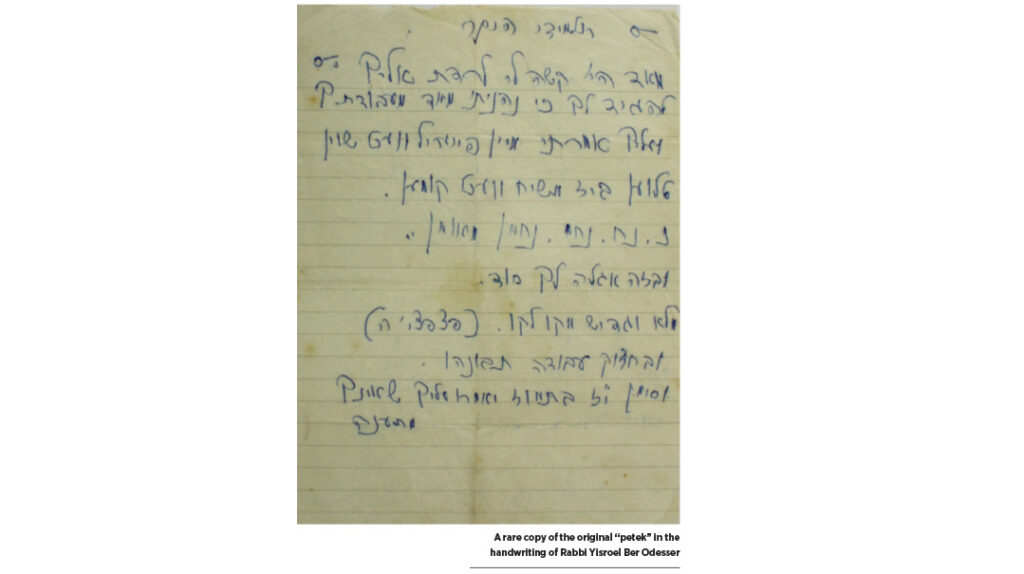 תלמידי היקר .
מאוד הי' קשה לי לרדת אליך
להגיד לך כי נהניתי מאוד מעבודתך
ועליך אמרתי מיין פייעריל וועט שוין
טלוען ביז משיח וועט קומען .
נ . נח . נחמ . נחמן מאומן ..
ובזה אגלה לך סוד .
מלא וגדיש מקו לקו . (פצפצי'ה)
ובחזוק עבודה תבינהו .
וסימן י"ז בתמוז יאמרו עליך שאינך
מתענה
A rare copy of the original “petek” in the
handwriting of Rabbi Yisroel Ber Odesser